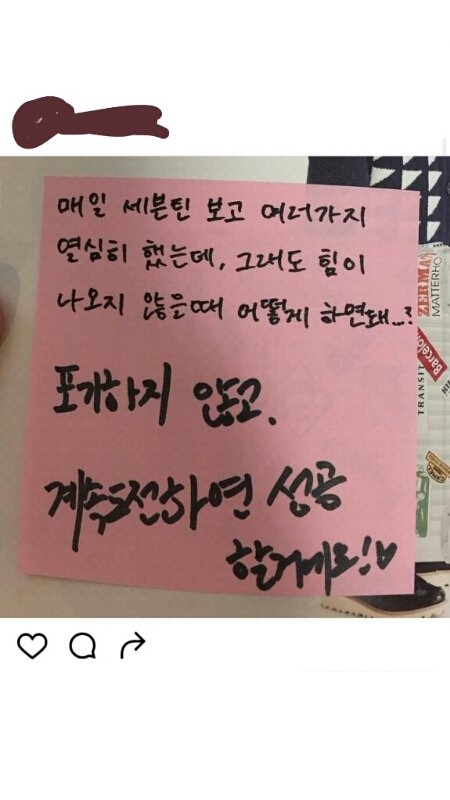 매일 세븐틴 보고 여러가지
열심히 했는데, 그래도 힘이
나오지 않을때 어떻게 하면돼...?
포기하지 않고.
계속도전하면 성공
할거예요!♥
ZERMA
MATTERHO
Barcelon
TRANSIT